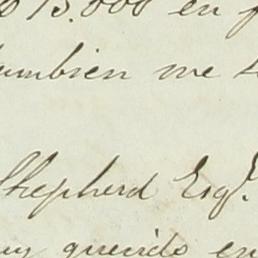 15.000 en
tambien me
Shepherd Esqr.
querido en